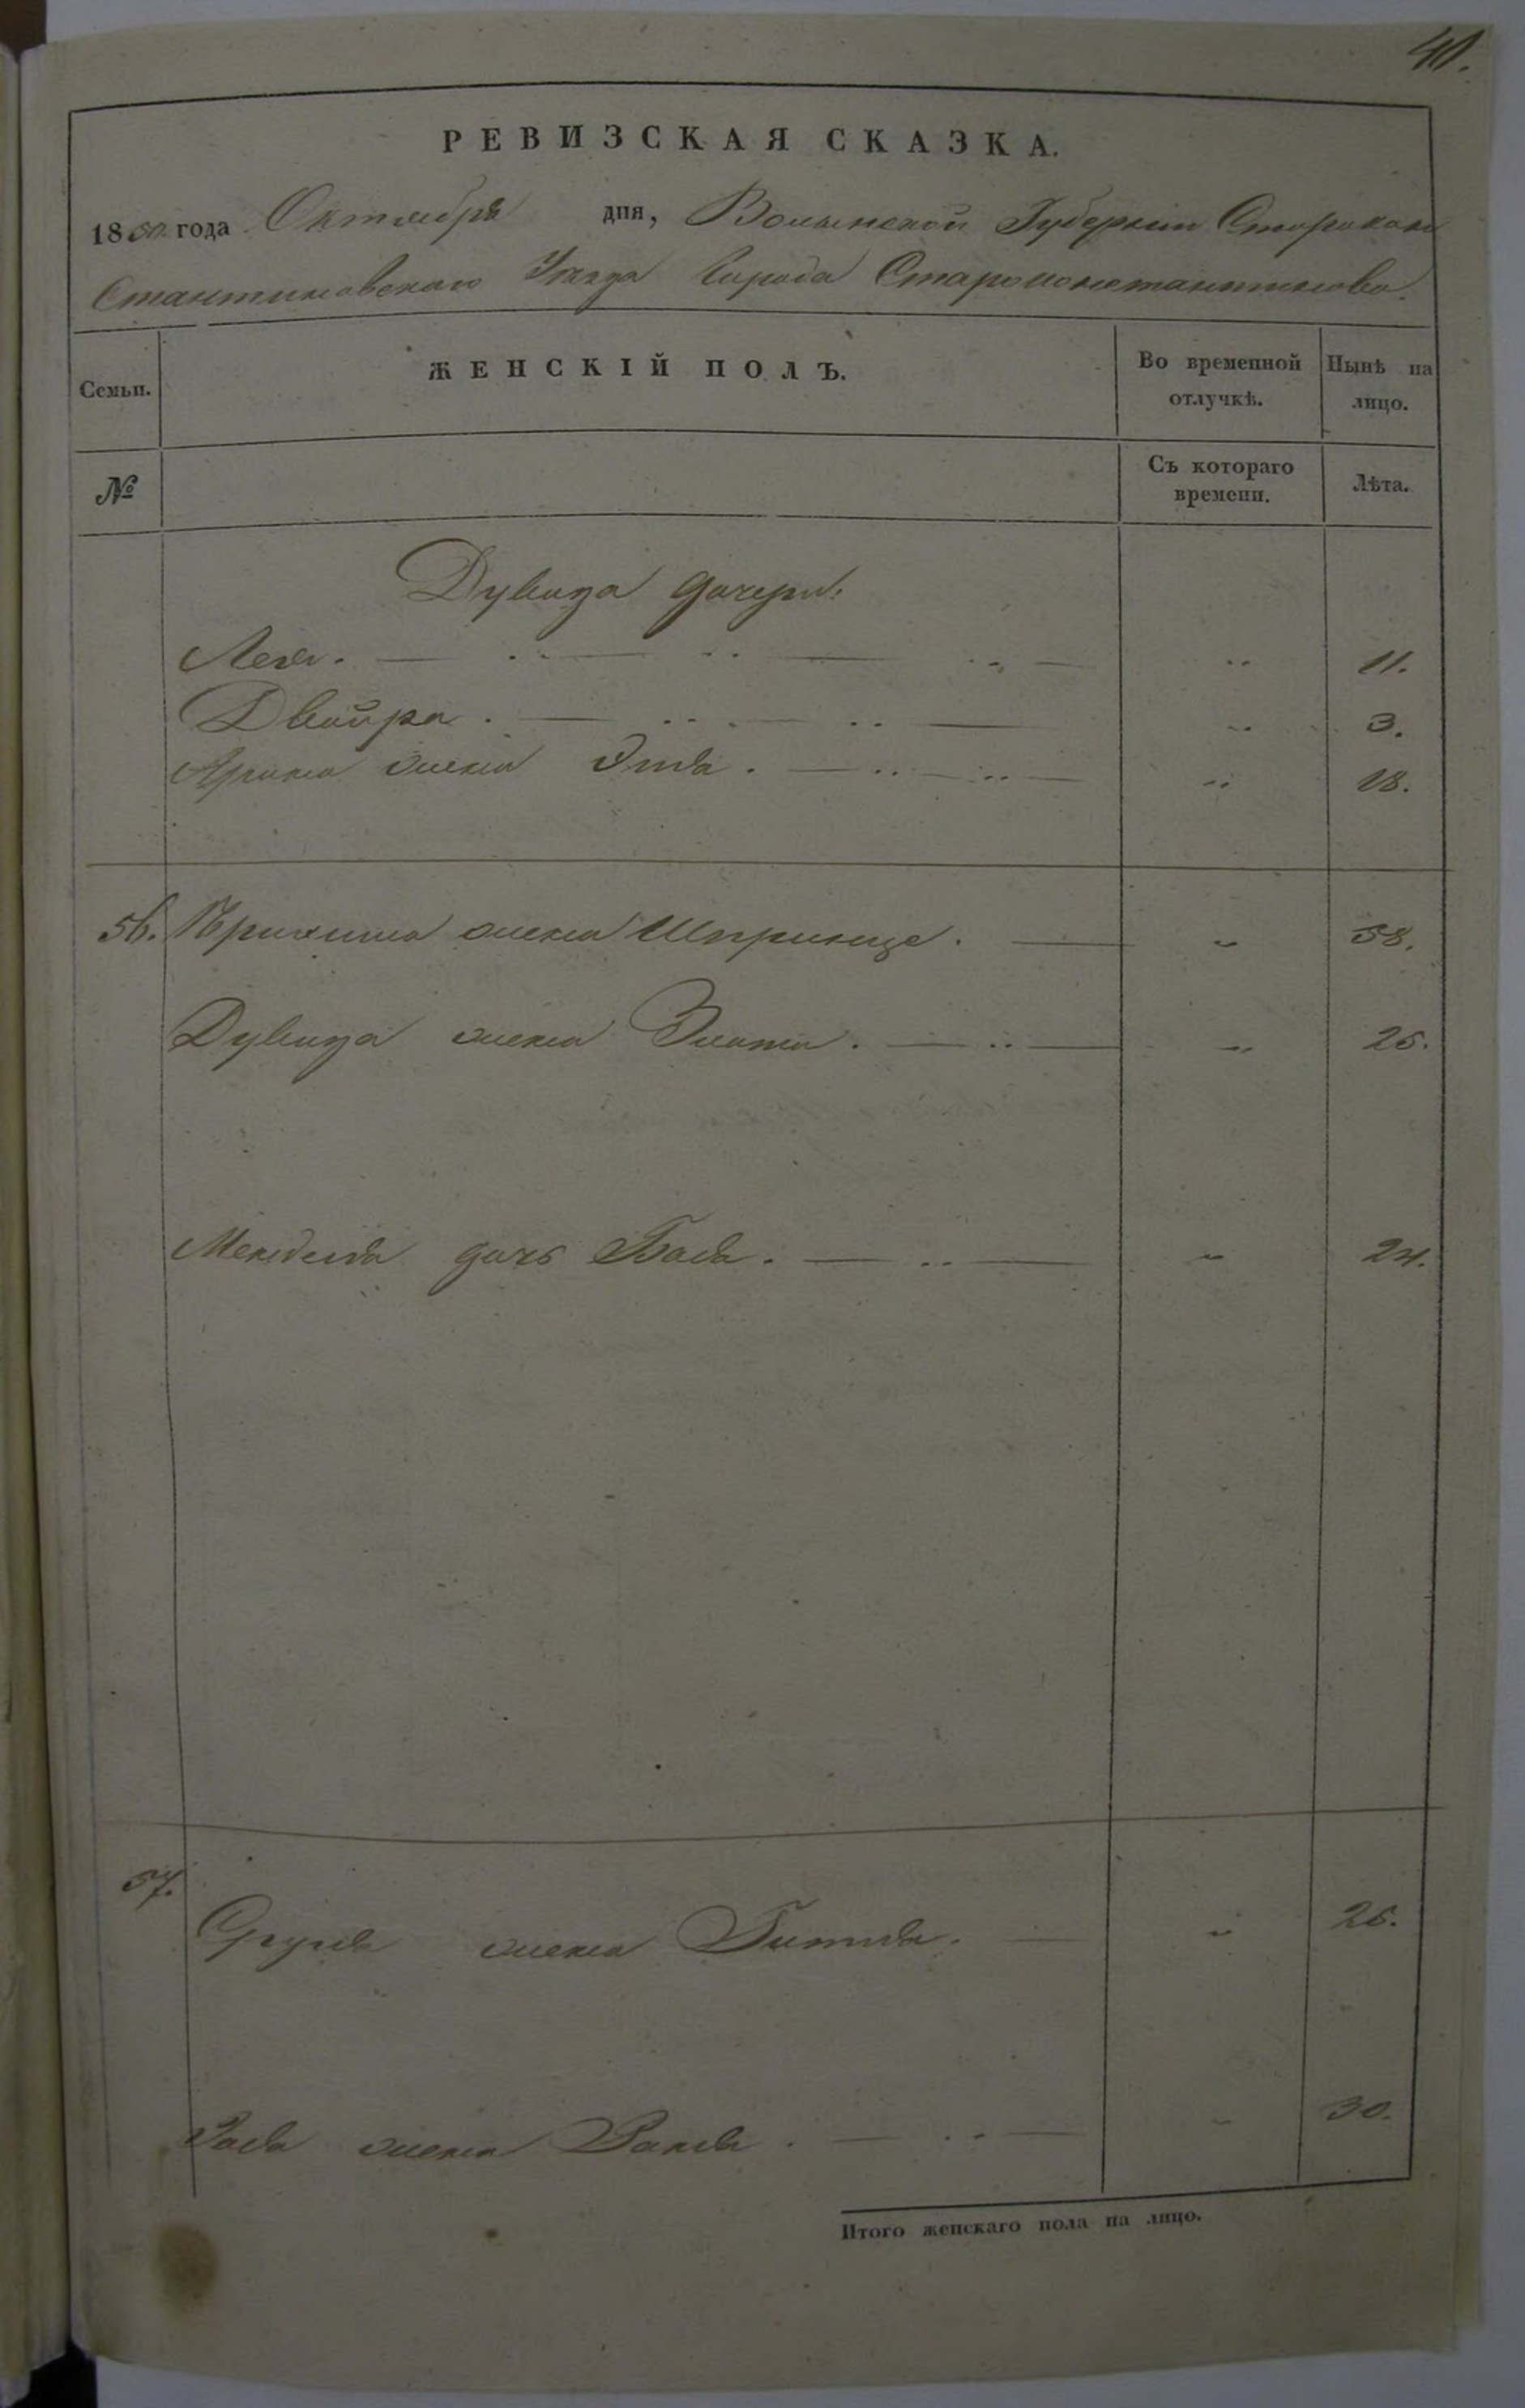 41.
РЕВИЗСКАЯ СКАЗКА.
1850 года Октября дня, Волынской Губерніи Старокон
стантиновскаго Уѣзда Города Староконстантинова.
Семьи. ЖЕНСКІЙ ПОЛЪ. Во временной отлучкѣ. Нынѣ на лицо.
№ Съ котораго времени. Лѣта.
Дувида дочери:
Лея. 11.
Двойра. 3.
жена 18.
56. жена Шпринце. 58.
Дувида жена Злота. 25.
Менделя дочь Бася. 24.
57.
Сруля жена Гитля. 26.
жена 30.
Итого женскаго пола на лицо.